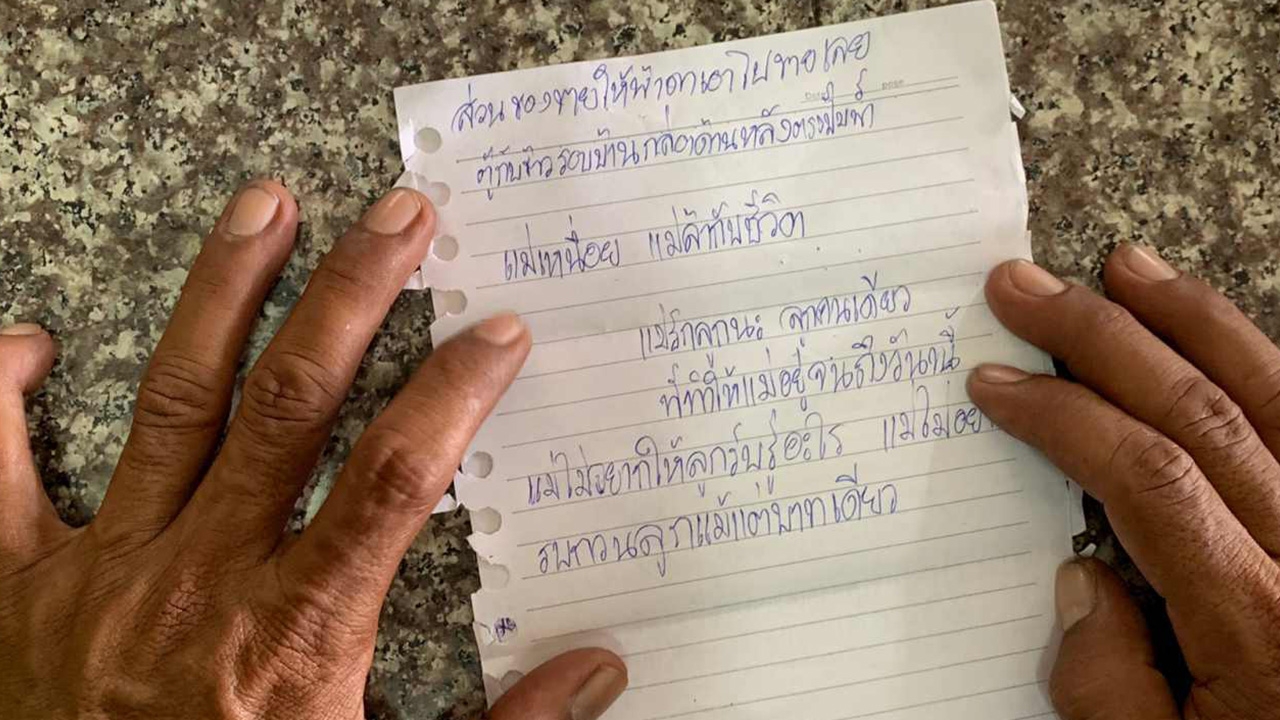 ส่วนของขายให้ฟ้าดาเอาไปขายเลย
ตู้กับข้าว รอบบ้าน กล่องด้านหลังตรงปั๊มน้ำ
แม่เหนื่อย แม่สู้กับชีวิต
แม่รักลูกนะ ลูกคนเดียว
ที่ทำให้แม่อยู่จนถึงวันนี้
แม่ไม่อยากให้ลูกรับรู้อะไร แม่ไม่อยา
รบกวนลูกแม้แต่บาทเดียว